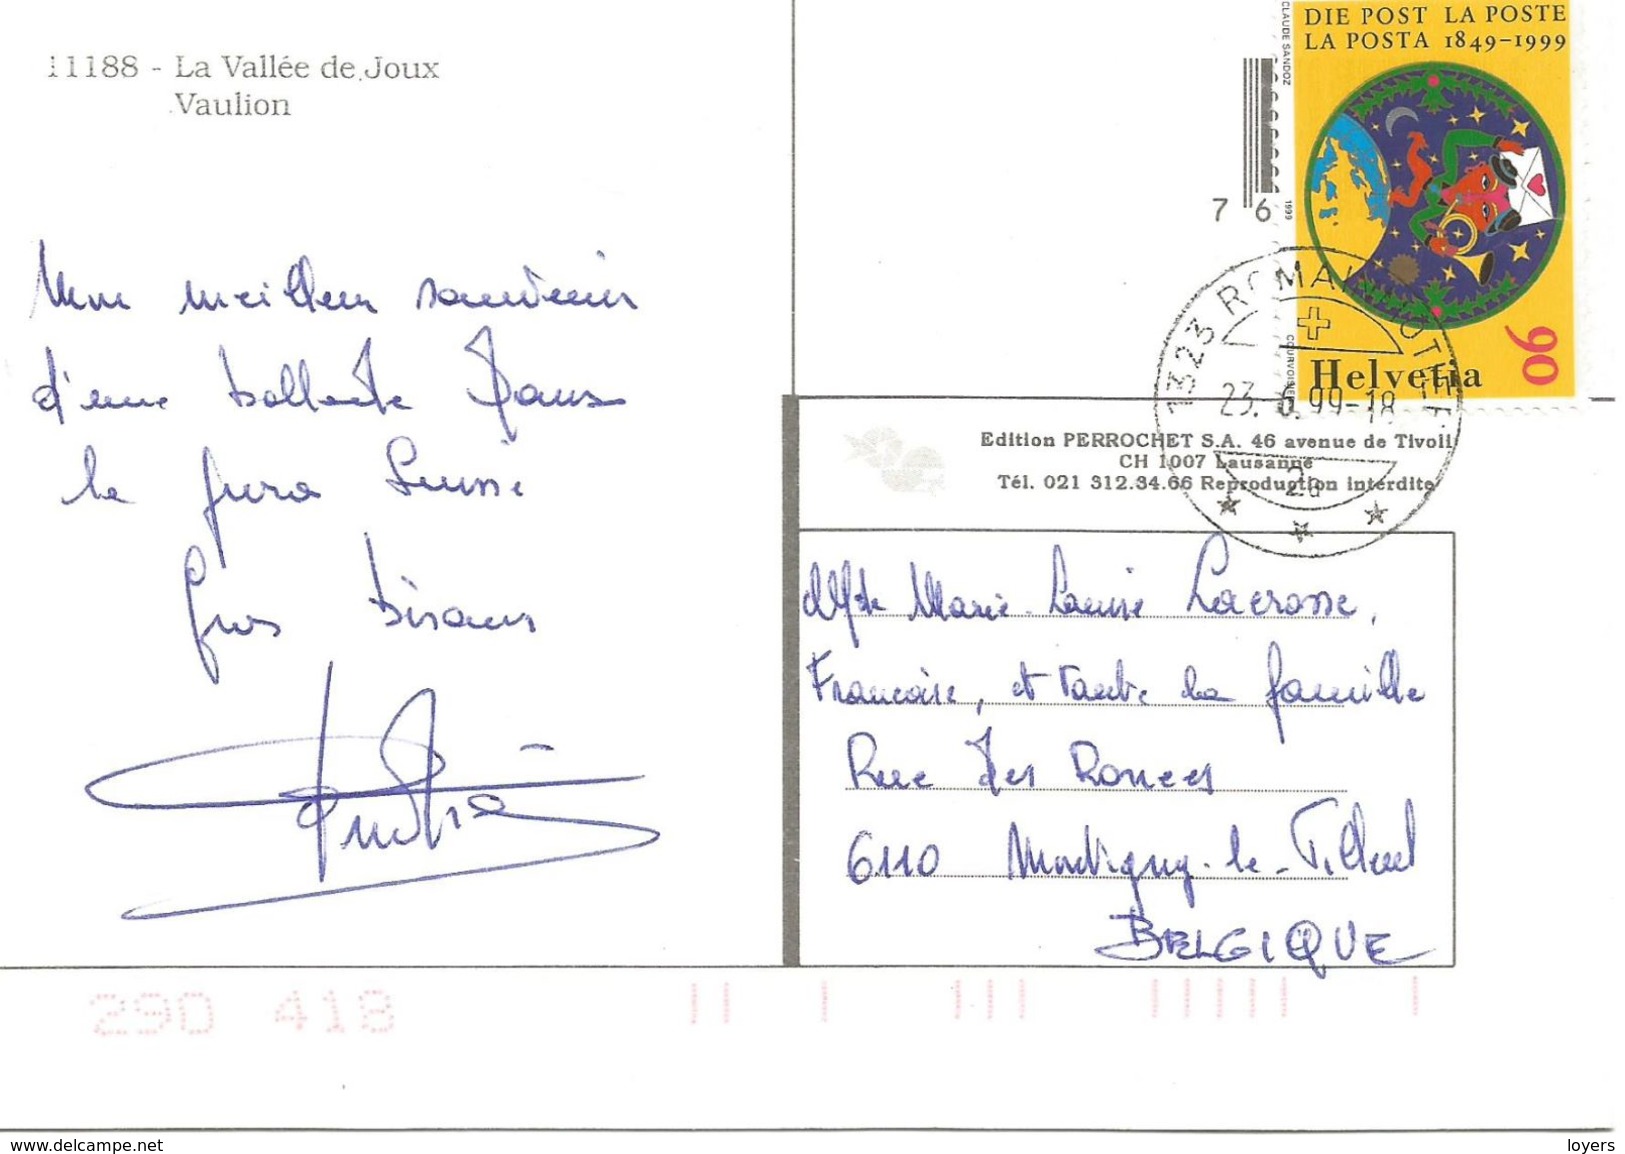 11188 - La Vallée de Joux
Vaulion
Mon meilleur souvenir
d'une ballade dans
le jura Suisse
Gros bisous
DIE POST LA POSTE
LA POSTA 1849-1999
CLAUDE SANDOZ
1999
COURVOISIER
90
Helvetia
76
1323 ROMAINMOTIER
23.6.99-18
2a
Edition PERROCHET S.A. 46 avenue de Tivoli
CH 1007 Lausanne
Tél. 021 312.34.66 Reproduction interdite
Marie-Louise Lacrosse,
Francoise, et toute la famille
Rue des Ronces
6110 Montigny-le-Tilleul
BELGIQUE
290 418
www.delcampe.net
loyers